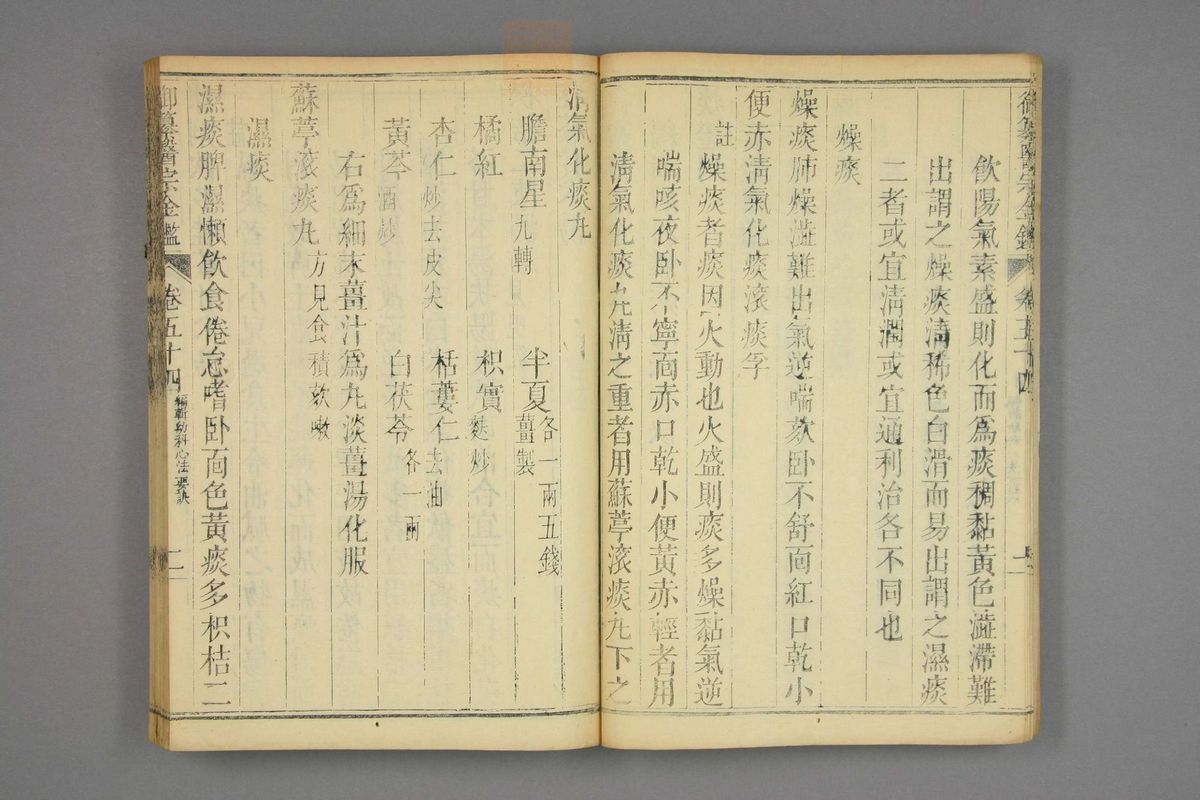 御纂醫宗金鑑 卷五十四
飲陽氣素盛則化而為痰稠黏黃色澁滯難
出謂之燥痰清稀色白滑而易出謂之濕痰
二者或宜淸潤或宜通利治各不同也
燥痰
燥痰肺燥澁難出氣逆喘欬卧不舒面紅口乾小
便赤淸氣化痰滾痰孚
註燥痰者痰因火動也火盛則痰多燥黏氣逆
喘咳夜卧不寧面赤口乾小便黃赤輕者用
淸氣化痰丸淸之重者用蘇葶滾痰丸下之
淸氣化痰丸
膽南星九轉 半夏薑製各一兩五錢
橘紅 枳實麩炒
杏仁炒去皮尖 栝蔞仁去油
黃芩酒炒 白茯苓各一兩
右爲細末薑汁爲丸淡薑湯化服
蘇葶滚痰丸方見食積欬嗽
濕痰
濕痰脾濕懶飲食倦怠嗜卧面色黃痰多枳桔二
御纂醫宗金鑑 卷五十四 編輯幼科心法要訣 二